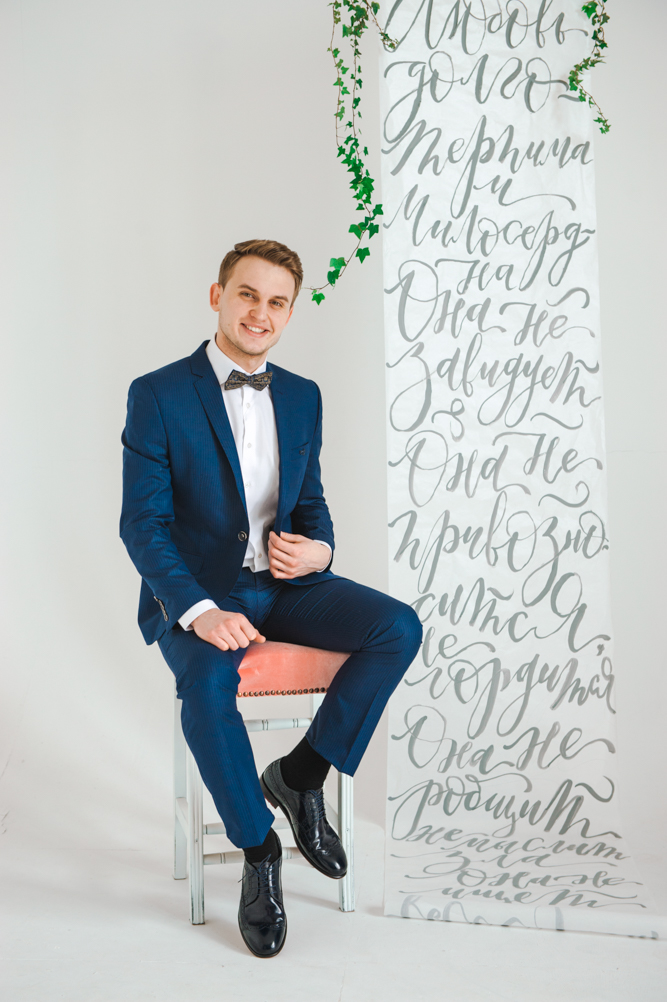 Любовь
долго-
терпима
и
Милосерд-
на
Она не
завидует
Она не
превозно-
сится,
не
гордится
Она не
мыслит
зла
Она не
ищет